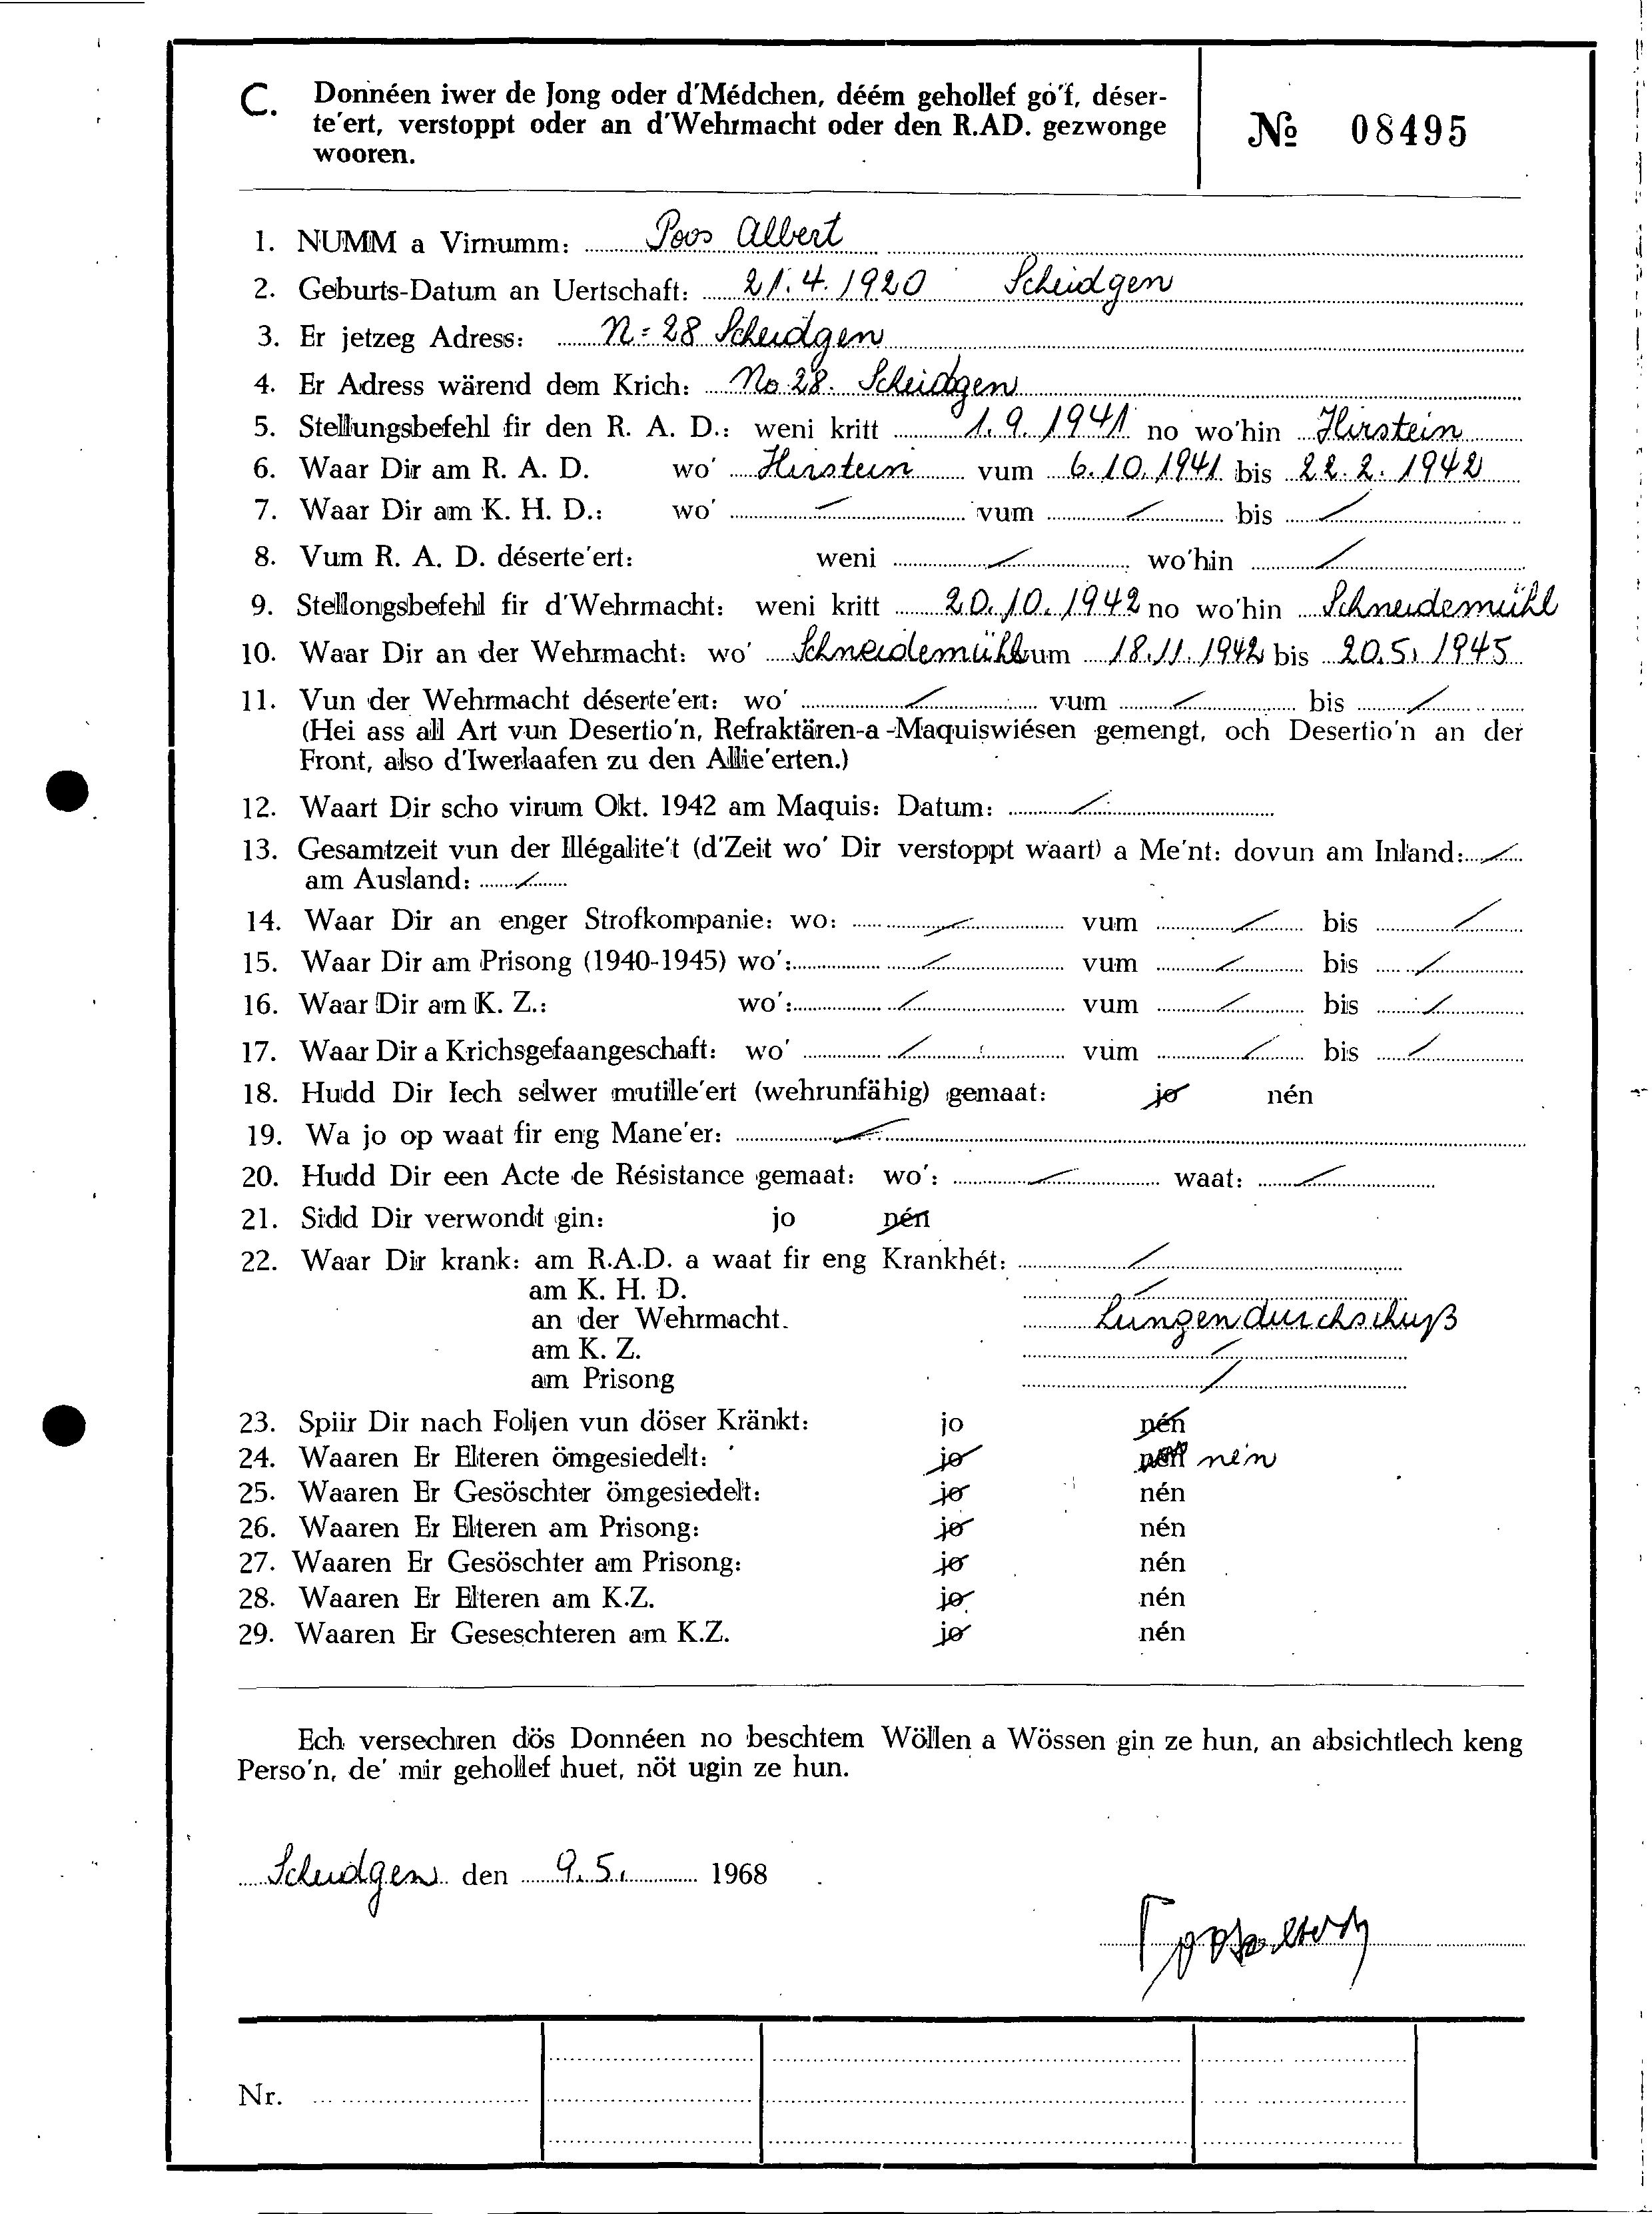 C. Donnéen iwer de Jong oder d'Médchen, déém gehollef gô'f, déser-
te'ert, verstoppt oder an d'Wehrmacht oder den R.AD. gezwonge
wooren.
№ 08495
1. NUMM a Virnumm: Poos Albert
2. Geburts-Datum an Uertschaft: 21.4.1920 Scheidgen
3. Er jetzeg Adress: N= 28 Scheidgen
4. Er Adress wärend dem Krich: No 28. Scheidgen
5. Stellungsbefehl fir den R. A. D.: weni kritt 1.9.1941 no wo'hin Hirstein
6. Waar Dir am R. A. D. wo' Hirstein vum 6.10.1941 bis 22.2.1942
7. Waar Dir am K. H. D.: wo' / vum / bis /
8. Vum R. A. D. déserte'ert: weni / wo'hin /
9. Stellongsbefehl fir d'Wehrmacht: weni kritt 20.10.1942 no wo'hin Schneidemühl
10. Waar Dir an der Wehrmacht: wo' Schneidemühl vum 18.11.1942 bis 20.5.1945
11. Vun der Wehrmacht déserte'ert: wo' / vum / bis /
(Hei ass all Art vun Desertio'n, Refraktären-a -Maquiswiésen gemengt, och Desertio'n an der
Front, also d'Iwerlaafen zu den Allie'erten.)
12. Waart Dir scho virum Okt. 1942 am Maquis: Datum: /
13. Gesamtzeit vun der Illégalite't (d'Zeit wo' Dir verstoppt waart) a Me'nt: dovun am Inland: /
am Ausland: /
14. Waar Dir an enger Strofkompanie: wo: / vum / bis /
15. Waar Dir am Prisong (1940-1945) wo': / vum / bis /
16. Waar Dir am K. Z.: wo': / vum / bis /
17. Waar Dir a Krichsgefaangeschaft: wo' / vum / bis /
18. Hudd Dir Iech selwer mutille'ert (wehrunfähig) gemaat: jo nén
19. Wa jo op waat fir eng Mane'er: /
20. Hudd Dir een Acte de Résistance gemaat: wo': / waat: /
21. Sidd Dir verwondt gin: jo nén
22. Waar Dir krank: am R.A.D. a waat fir eng Krankhét: /
am K. H. D. /
an der Wehrmacht. Lungendurchschuß
am K. Z. /
am Prisong /
23. Spiir Dir nach Foljen vun döser Kränkt: jo nén
24. Waaren Er Elteren ömgesiedelt: jo nén nén
25. Waaren Er Gesöschter ömgesiedelt: jo nén
26. Waaren Er Elteren am Prisong: jo nén
27. Waaren Er Gesöschter am Prisong: jo nén
28. Waaren Er Elteren am K.Z. jo nén
29. Waaren Er Geseschteren am K.Z. jo nén
Ech versechren dös Donnéen no beschtem Wöllen a Wössen gin ze hun, an absichtlech keng
Perso'n, de' mir gehollef huet, nöt ugin ze hun.
Scheidgen den 9.5. 1968
Nr.